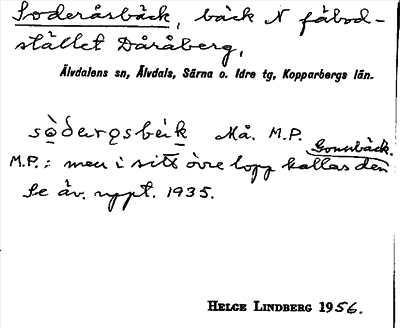 Soderåsbäck, bäck N fäbod-
stället Dåråberg,
Älvdalens sn, Älvdals, Särna o. Idre tg, Kopparbergs län.
Må. M.P.
M.P.: men i sitt övre lopp kallas den Gonusbäck.
Se äv. uppt. 1935.
HELGE LINDBERG 1956.